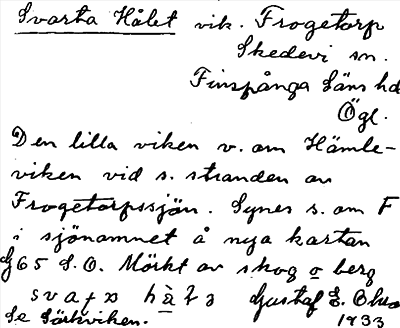 Svarta Hålet vik. Frogetorp
Skedevi sn.
Finspånga läns hd
Ögl.
Den lilla viken v. om Hämle-
viken vid s. stranden av
Frogetorpssjön. Synes s. om F
i sjönamnet å nya kartan
G65 S.O. Mörkt av skog o berg
Gustaf E.
Se Sörkviken. 1933